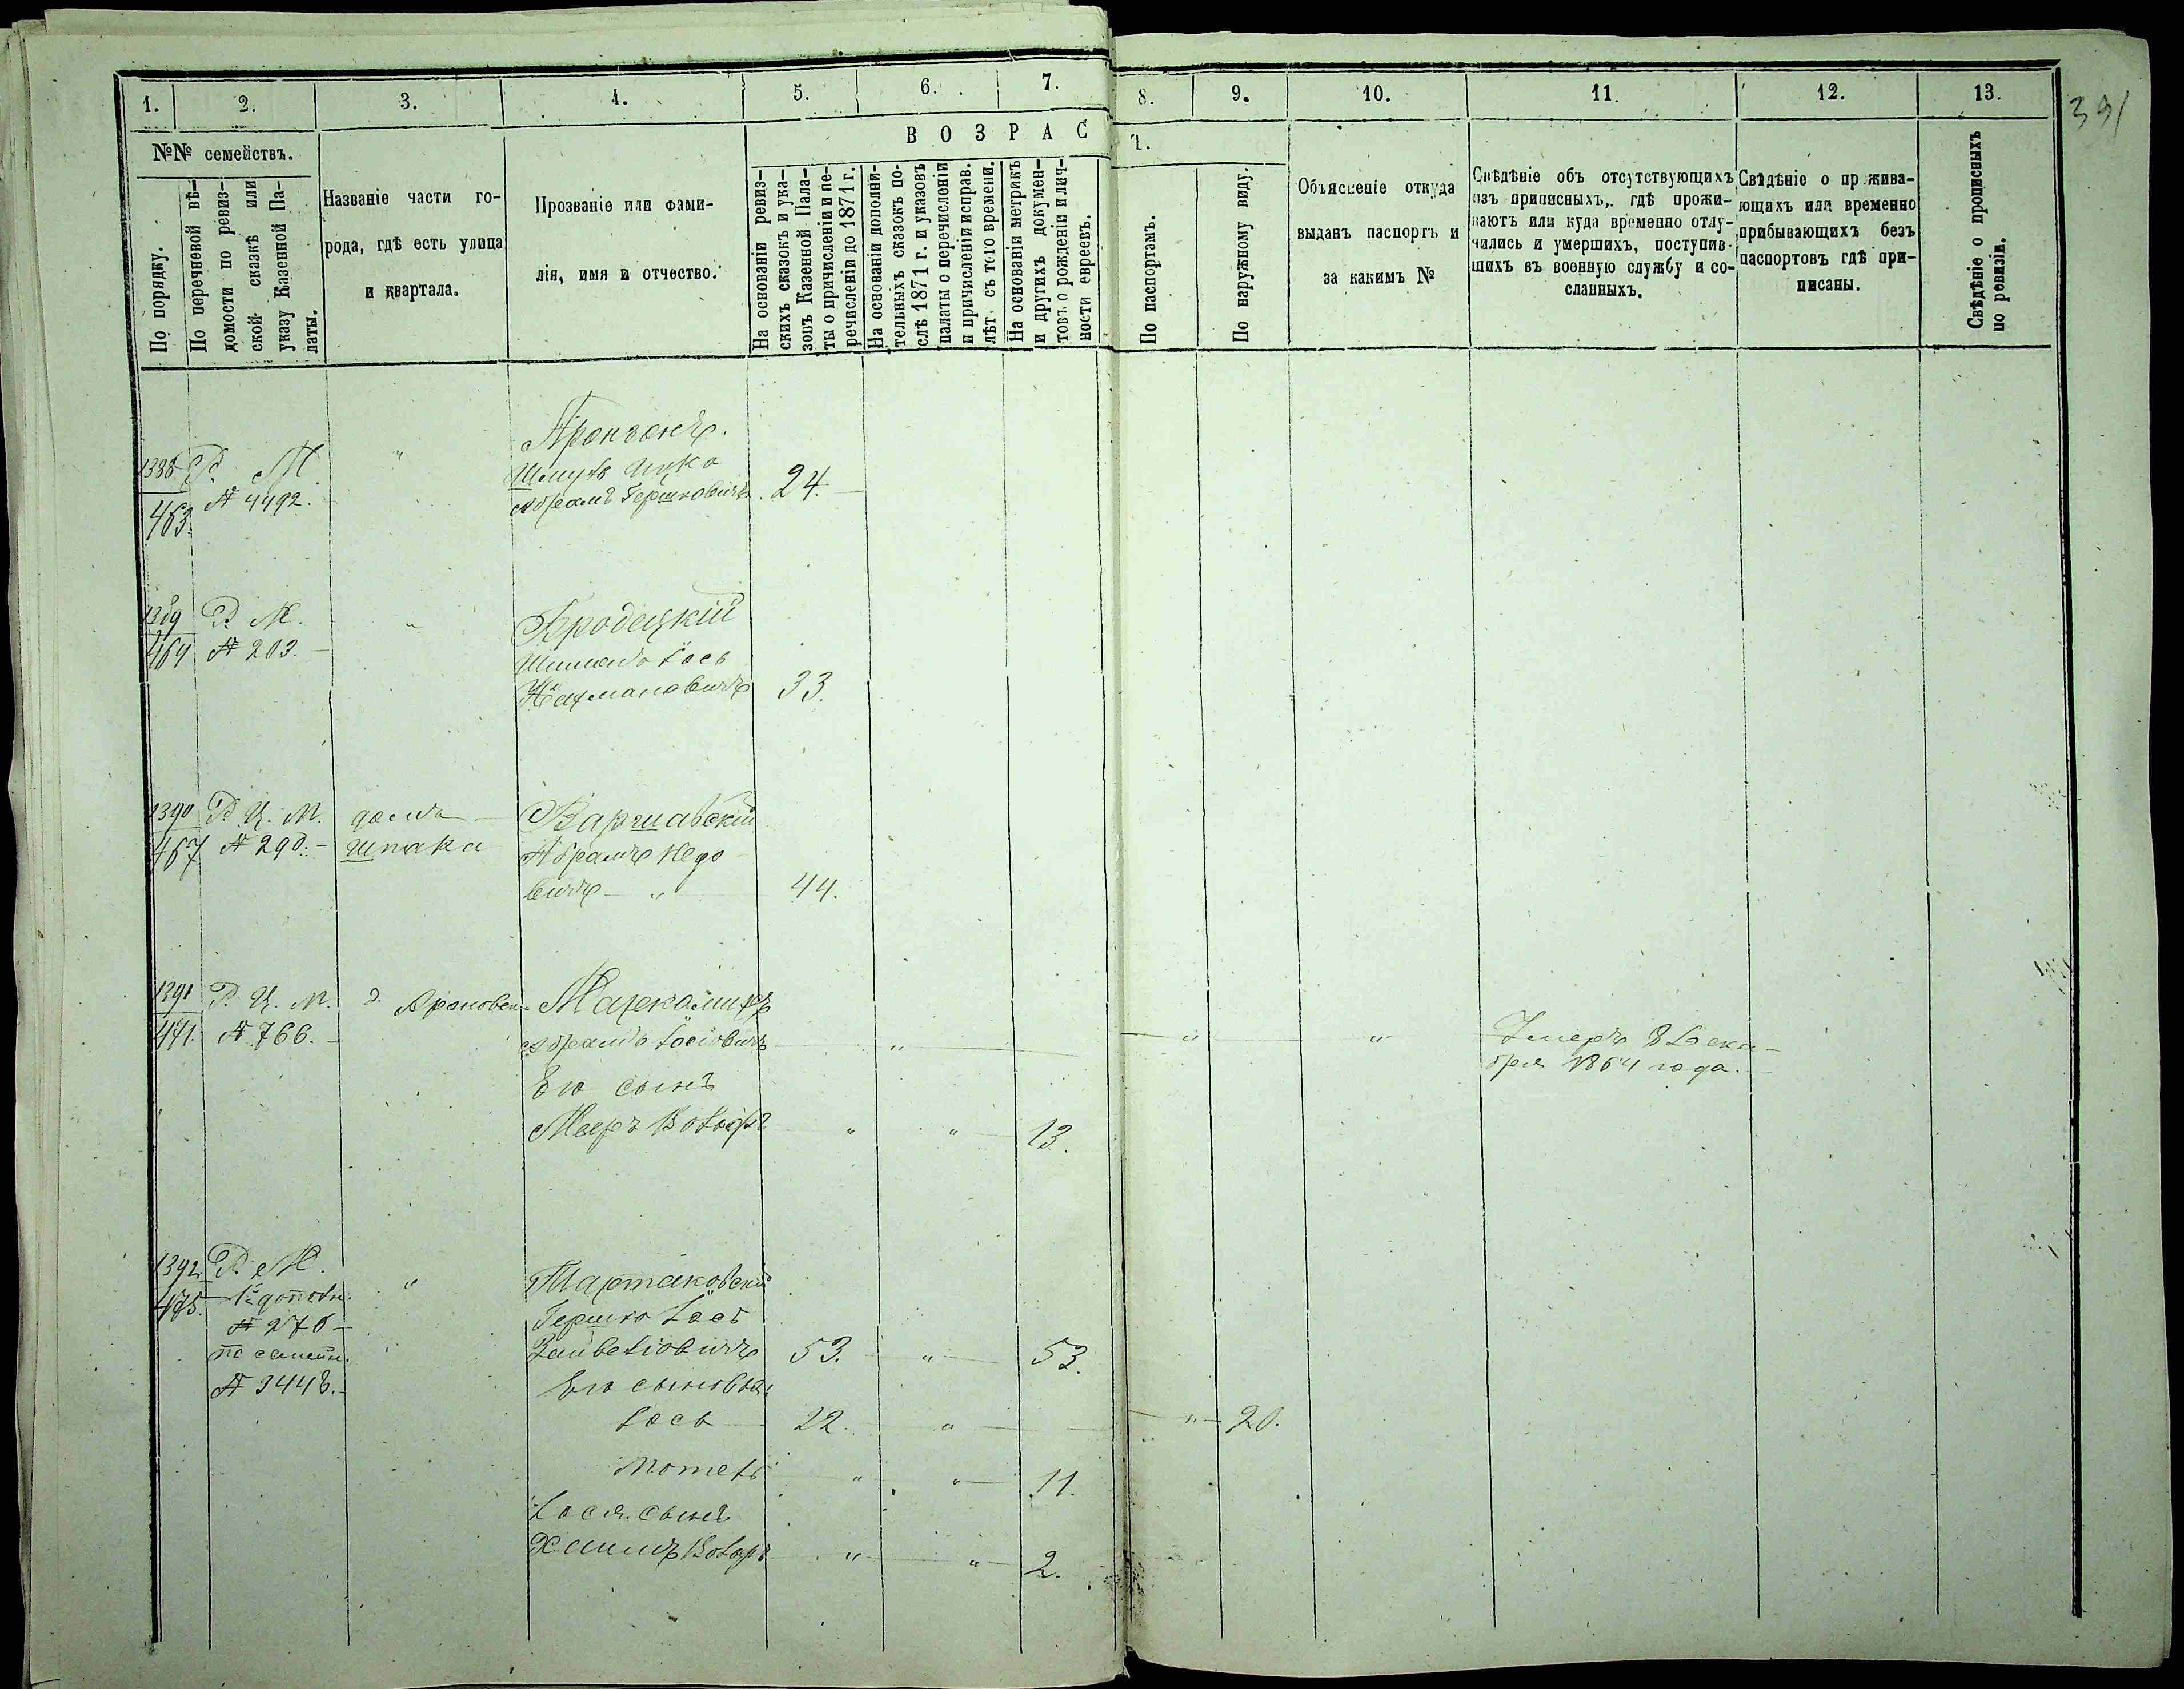 391
1. 2. 3. 4. 5. 6. 7. 8. 9. 10. 11. 12. 13.
№№ семействъ.
По порядку.
По перечневой вѣ-
домости по ревиз-
ской сказкѣ или
указу Казенной Па-
латы.
Названіе части го-
рода, гдѣ есть улица
и квартала.
Прозваніе или фами-
лія, имя и отчество.
ВОЗРАСТ.
На основаніи ревиз-
скихъ сказокъ и ука-
зовъ Казенной Пала-
ты о причисленіи и пе-
речисленіи до 1871 г.
На основаніи дополни-
тельныхъ сказокъ по-
слѣ 1871 г. и указовъ
палаты о перечисленіи
и причисленіи исправ.
лѣт съ того времени.
На основаніи метрикъ
и другихъ докумен-
товъ о рожденіи и лич-
ности евреевъ.
По паспортамъ.
По наружному виду.
Объясненіе откуда
выданъ паспортъ и
за какимъ №
Свѣдѣніе объ отсутствующихъ
изъ приписныхъ, гдѣ прожи-
ваютъ или куда временно отлу-
чились и умершихъ, поступив-
шихъ въ военную службу и со-
сланныхъ.
Свѣдѣніе о прожива-
ющихъ или временно
прибывающихъ безъ
паспортовъ гдѣ при-
писаны.
Свѣдѣніе о прописныхъ
по ревизіи.
1388 Р. М. "
463. № 4492.
Шмуль Ицко
Абрамъ Гершковичъ. 24.
1389 Р. М. " Бродецкій
464 № 203.
Іось
Нахмановичъ 33.
1390 Р. Ц. М. домъ Варшавскій
467 № 290. Шпака Абрамъ
вичъ " 44.
1391 Р. Ц. М. д.
471. № 766. Абрамъ Іосіовичъ " " " Умеръ 8 Дека-
бря 1864 года.
Его сынъ
Мееръ Вольфъ " " 13.
1392. Р. М. " Тартаковскій
475. 1й дополн. Гершко Іось
№ 276
по семейн. 53. " 53.
№ 3448. Его сыновья:
Іось 22. " " 20.
Мотель " " 11.
Іося сынъ
Хаимъ Вольфъ " " 2.